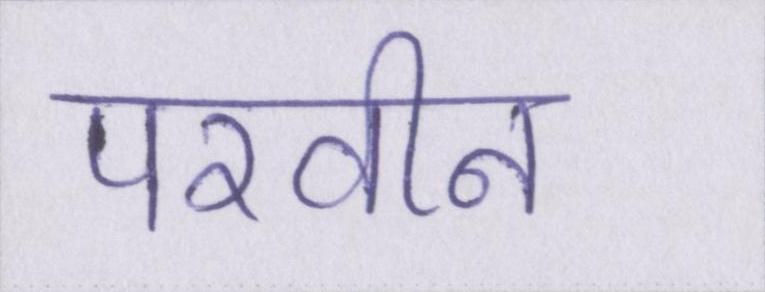 परवीन